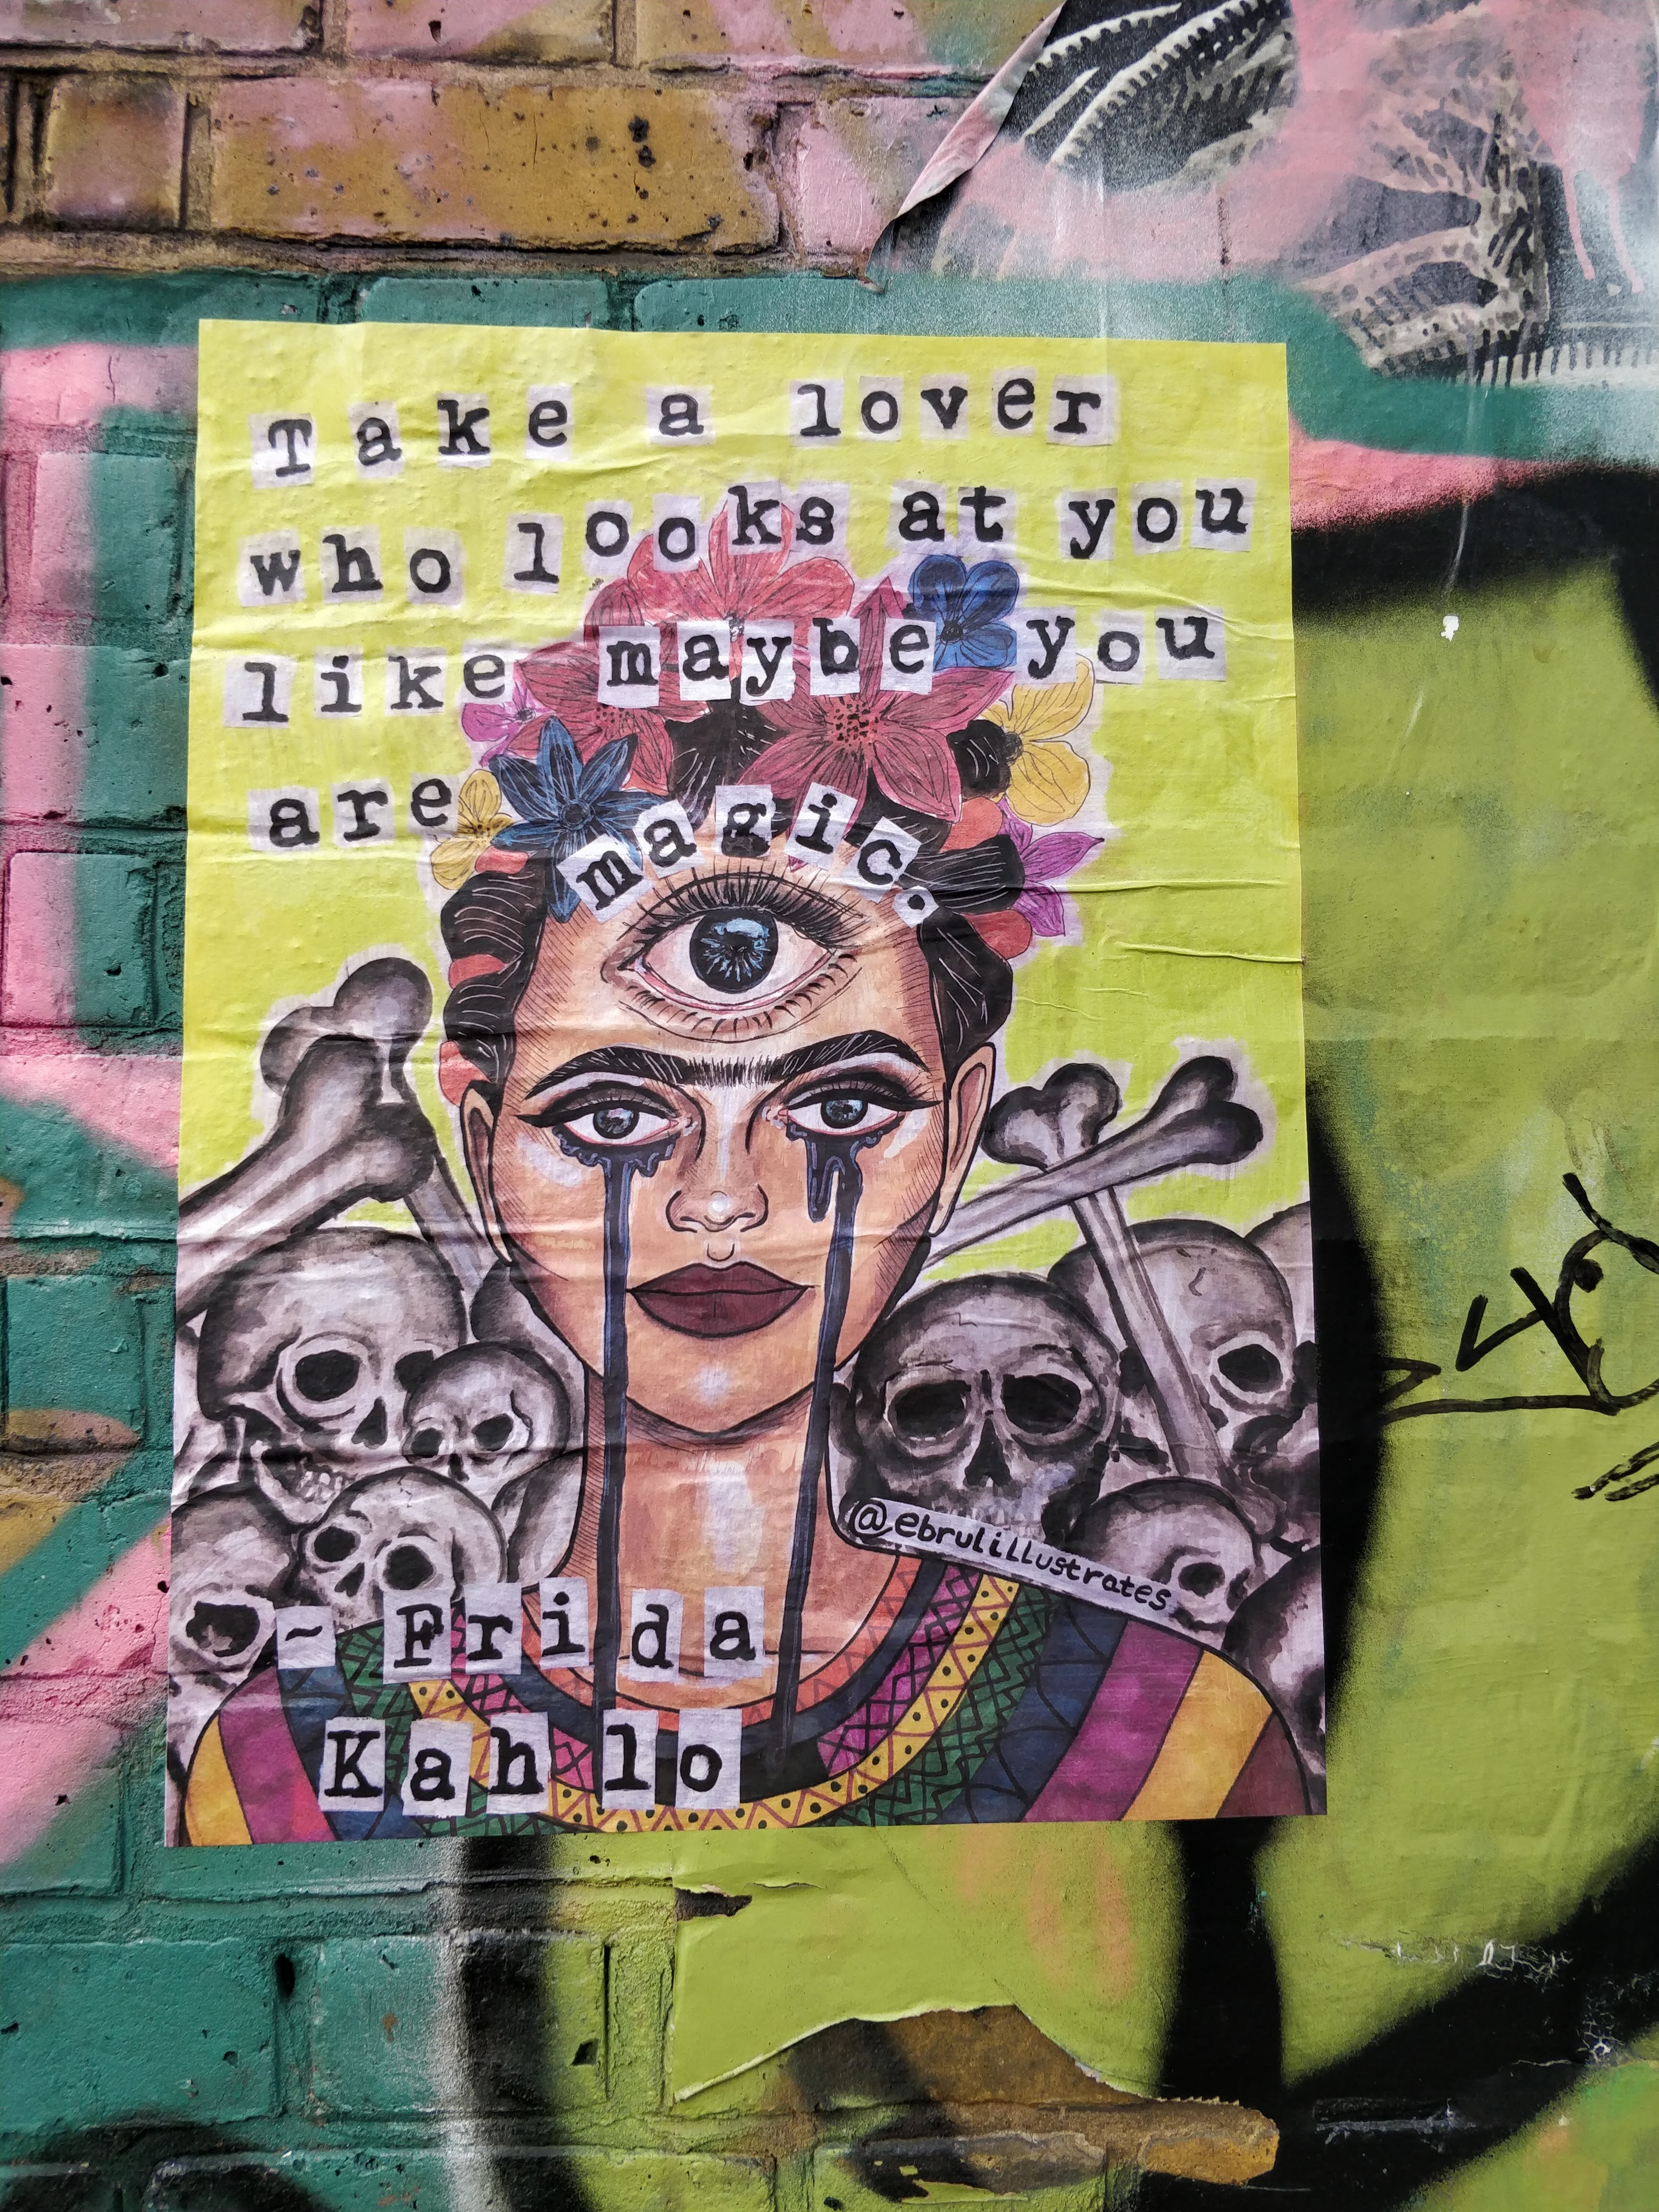 Take a lover
who looks at you
like maybe you
are magic.
@ebrulillustrates
~ Frida
Kahlo